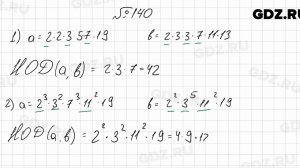 № 140
GDZ.RU
1) a = 2·2·3·5·7·19   b = 2·3·3·7·11·13
НОД(a, b) = 2·3·7 = 42
2) a = 2³·3²·7³·11²·19   b = 2²·3⁵·11²·19
НОД(a, b) = 2²·3²·11²·19 = 4·9·12